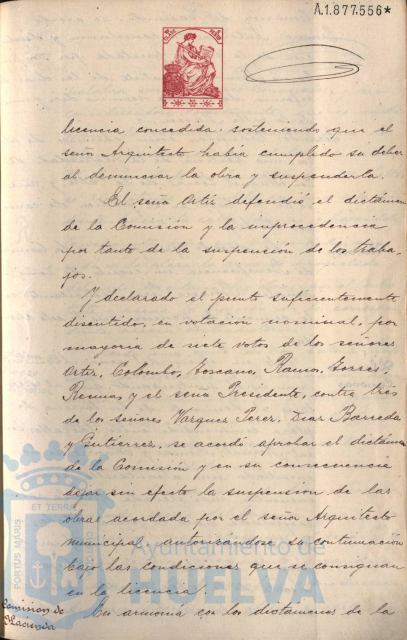 A.1.877.556*
licencia concedida, sosteniendo que el
señor Arquitecto había cumplido su deber
al denunciar la obra y suspenderla.
El señor Ortiz defendió el dictamen
de la Comisión y la improcedencia
por tanto de la suspensión de los traba-
jos.
Y declarado el punto suficientemente
discutido, en votación nominal, por
mayoría de siete votos de los señores
Ortiz, Colombo, Toscano, Ramos, Torres,
y el señor Presidente, contra tres
de los señores Vazquez Perez, Diaz Barreda
y Gutierrez, se acordó aprobar el dictamen
de la Comisión y en su consecuencia
dejar sin efecto la suspensión de las
obras acordada por el señor Arquitecto
municipal, autorizándose su continuación
bajo las condiciones que se consignan
en la licencia.
Comisión de
Hacienda
En armonía con los dictámenes de la
PORTUS MARIS
ET TERRAE
Ayuntamiento de
HUELVA